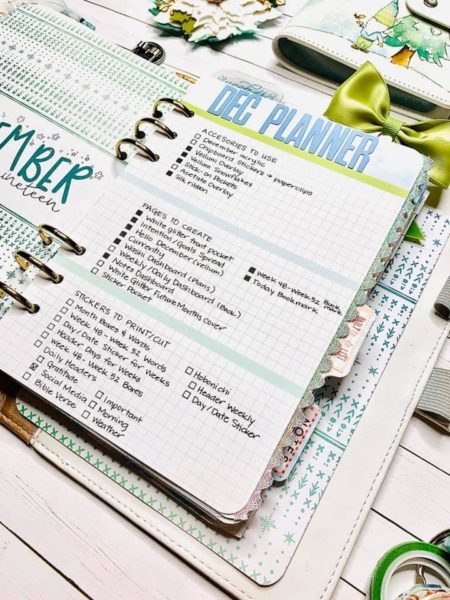 EMBER
nineteen
DEC PLANNER
ACCESORIES TO USE
December acrylic
Chipboard Stickers → paperclips
Vellum Overlay
Vellum Snowflakes
Stick on Pockets
Acetate Overlay
Silk ribbon
PAGES TO CREATE
White Glitter front Pocket
Intention/Goals Spread
Hello December (vellum)
Currently
Washi Dashboard (Plans)
Weekly/Daily Dashboard (Back)
Notes Dashboard
White Glitter Future Monthly cover
Sticker Pocket
Week 48-Week 52 Book mark
Today Bookmark
STICKERS TO PRINT/CUT
Month Boxes & Words
Week 48 - Week 52 Words
Day/Date Sticker for Weeks
Header Days for Weeks
Week 48 - Week 52 Boxes
Daily Headers
Gratitude
Social Media
Bible Verse
Important
Morning
Weather
Hobonichi
Header Weekly
Day/Date Sticker
NOTES